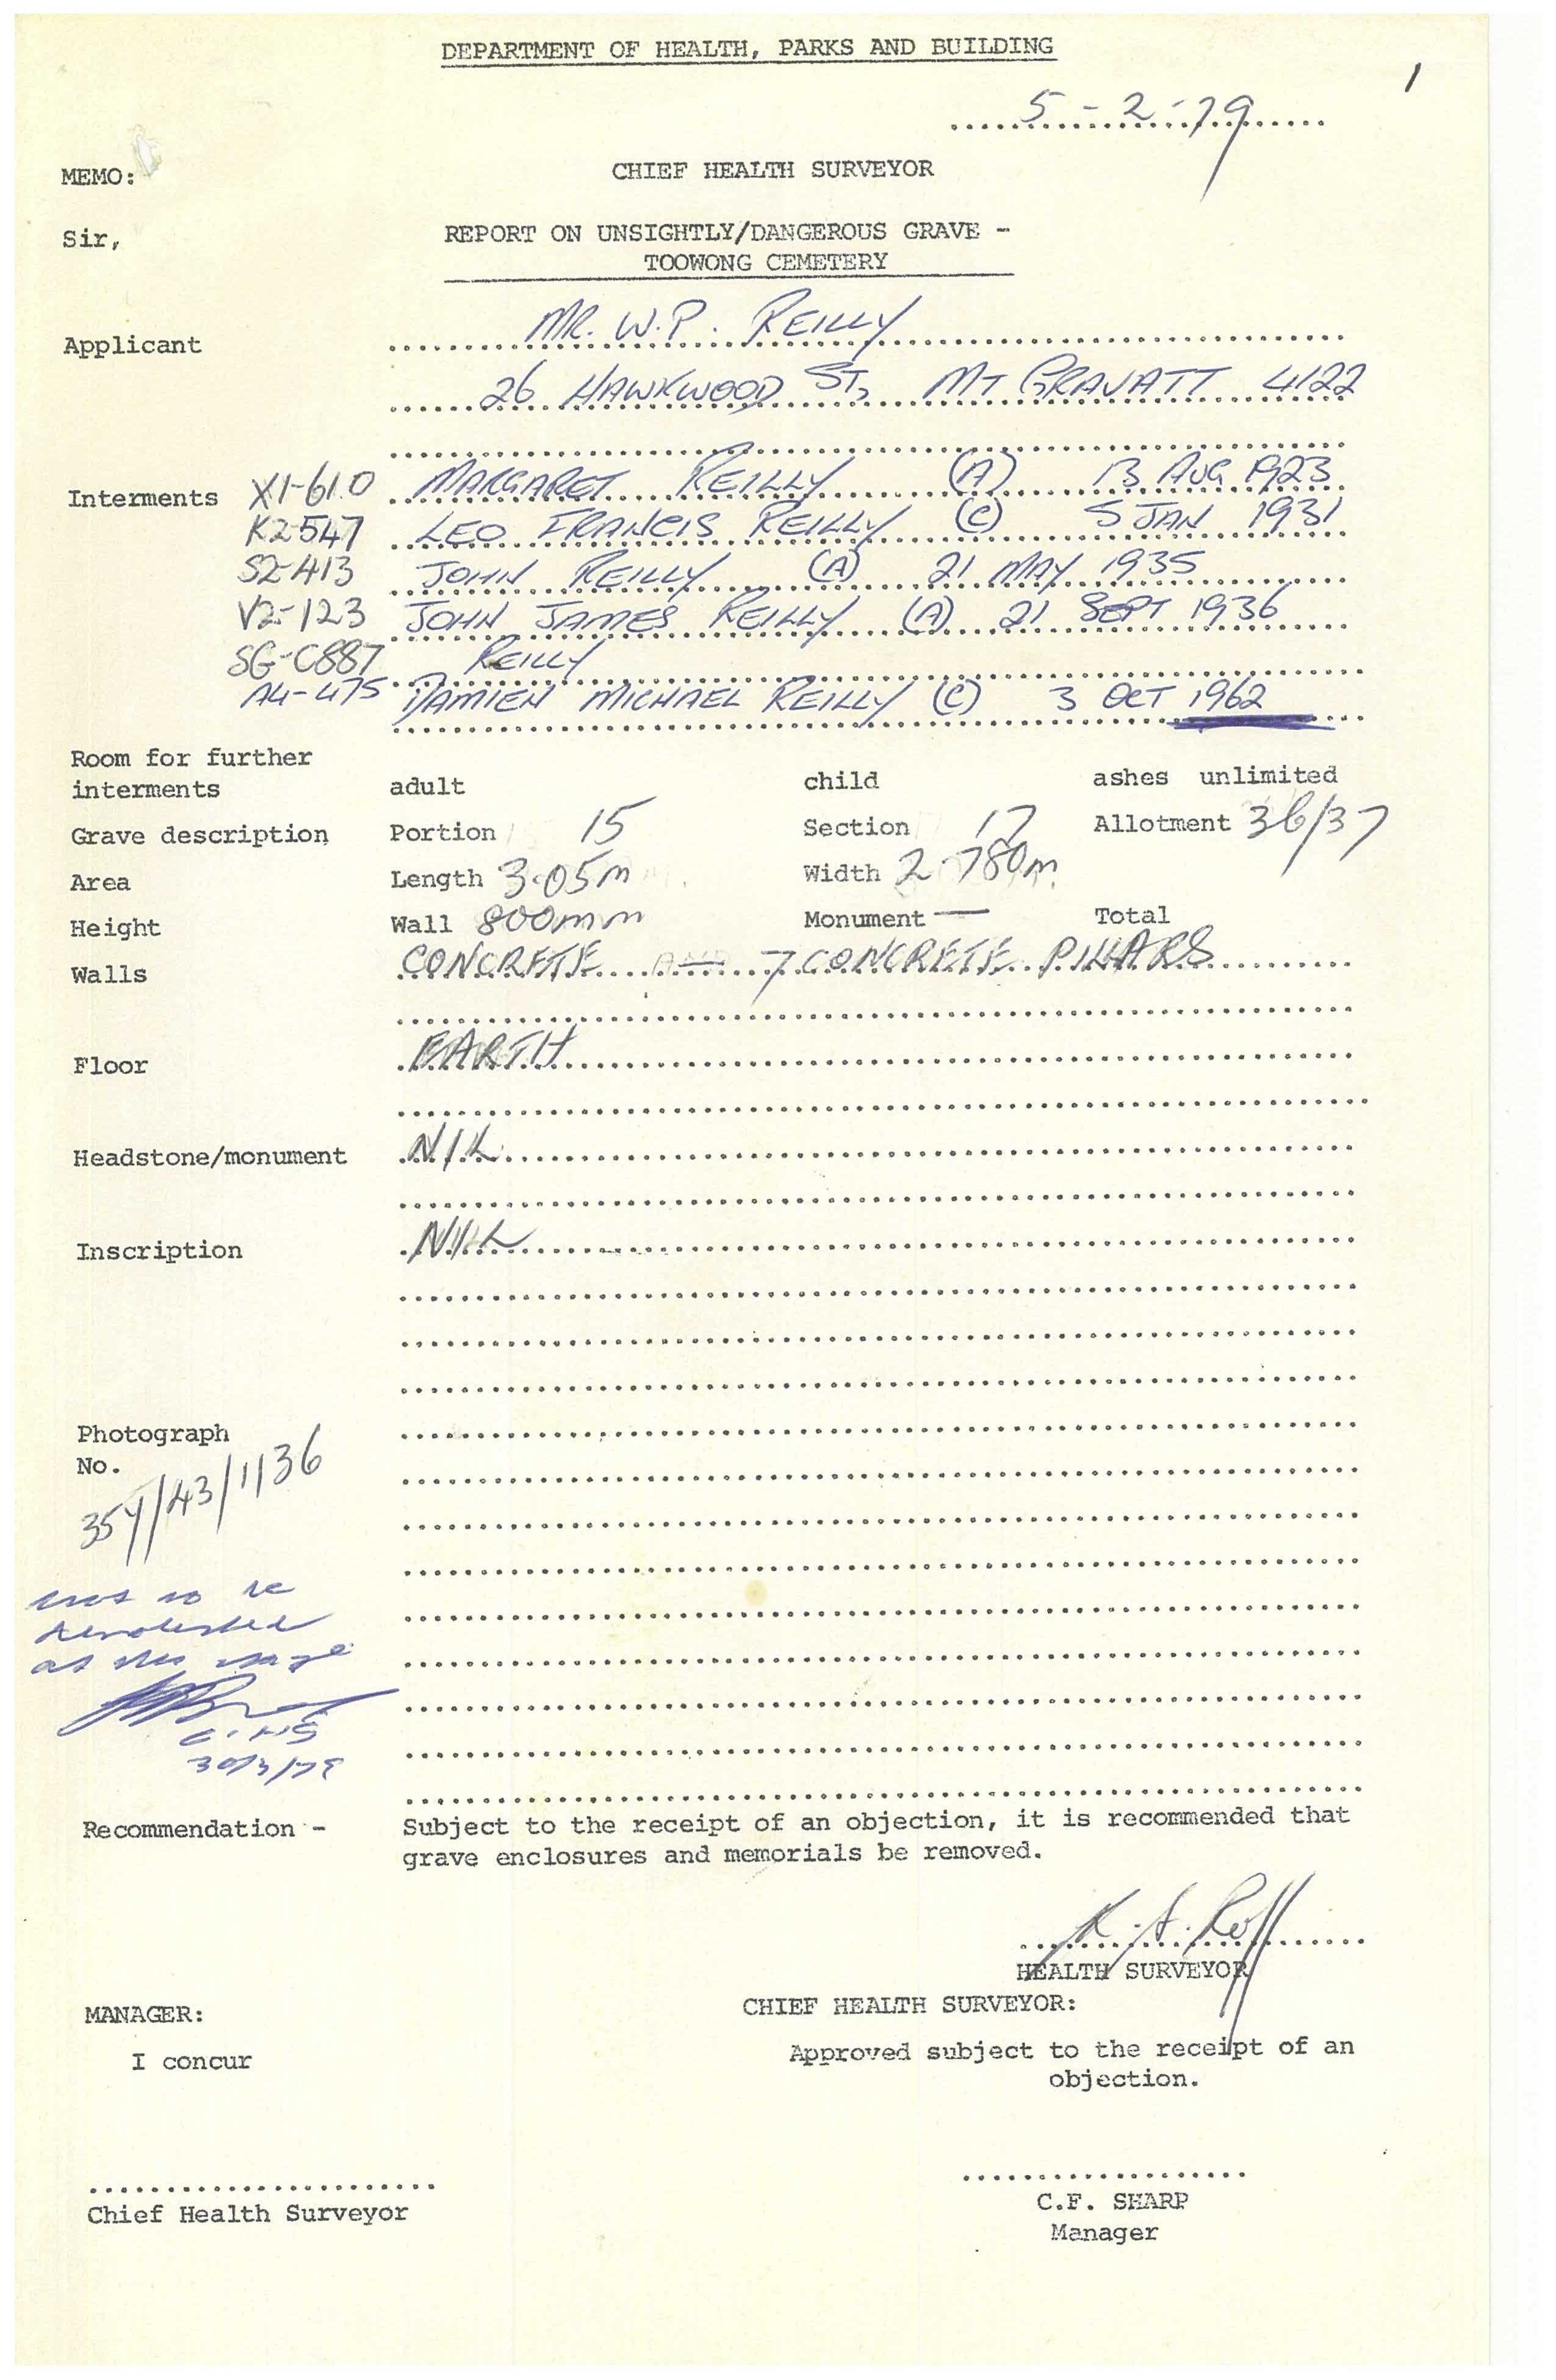 DEPARTMENT OF HEALTH, PARKS AND BUILDING
1
5-2-79
MEMO: CHIEF HEALTH SURVEYOR
Sir, REPORT ON UNSIGHTLY/DANGEROUS GRAVE -
TOOWONG CEMETERY
Applicant MR. W.P. REILLY
26 HAWKWOOD ST, MT GRAVATT 4122
Interments X1-610 MARGARET REILLY (A) 13 AUG 1923
K2-547 LEO FRANCIS REILLY (C) 5 JAN 1931
S2-413 JOHN REILLY (A) 21 MAY 1935
V2-123 JOHN JAMES REILLY (A) 21 SEPT 1936
SG-C887 REILLY
A4-475 DAMIEN MICHAEL REILLY (C) 3 OCT 1962
Room for further
interments adult child ashes unlimited
Grave description Portion 15 Section 17 Allotment 36/37
Area Length 3.05m Width 2.780m
Height Wall 800mm Monument — Total
Walls CONCRETE — 7 CONCRETE PILLARS
Floor EARTH
Headstone/monument NIL
Inscription NIL
Photograph
No.
354/43/1/36
not to be
demolished
at this stage
C.H.S
30/3/79
Recommendation - Subject to the receipt of an objection, it is recommended that
grave enclosures and memorials be removed.
HEALTH SURVEYOR
MANAGER: CHIEF HEALTH SURVEYOR:
I concur Approved subject to the receipt of an
objection.
Chief Health Surveyor C.F. SHARP
Manager